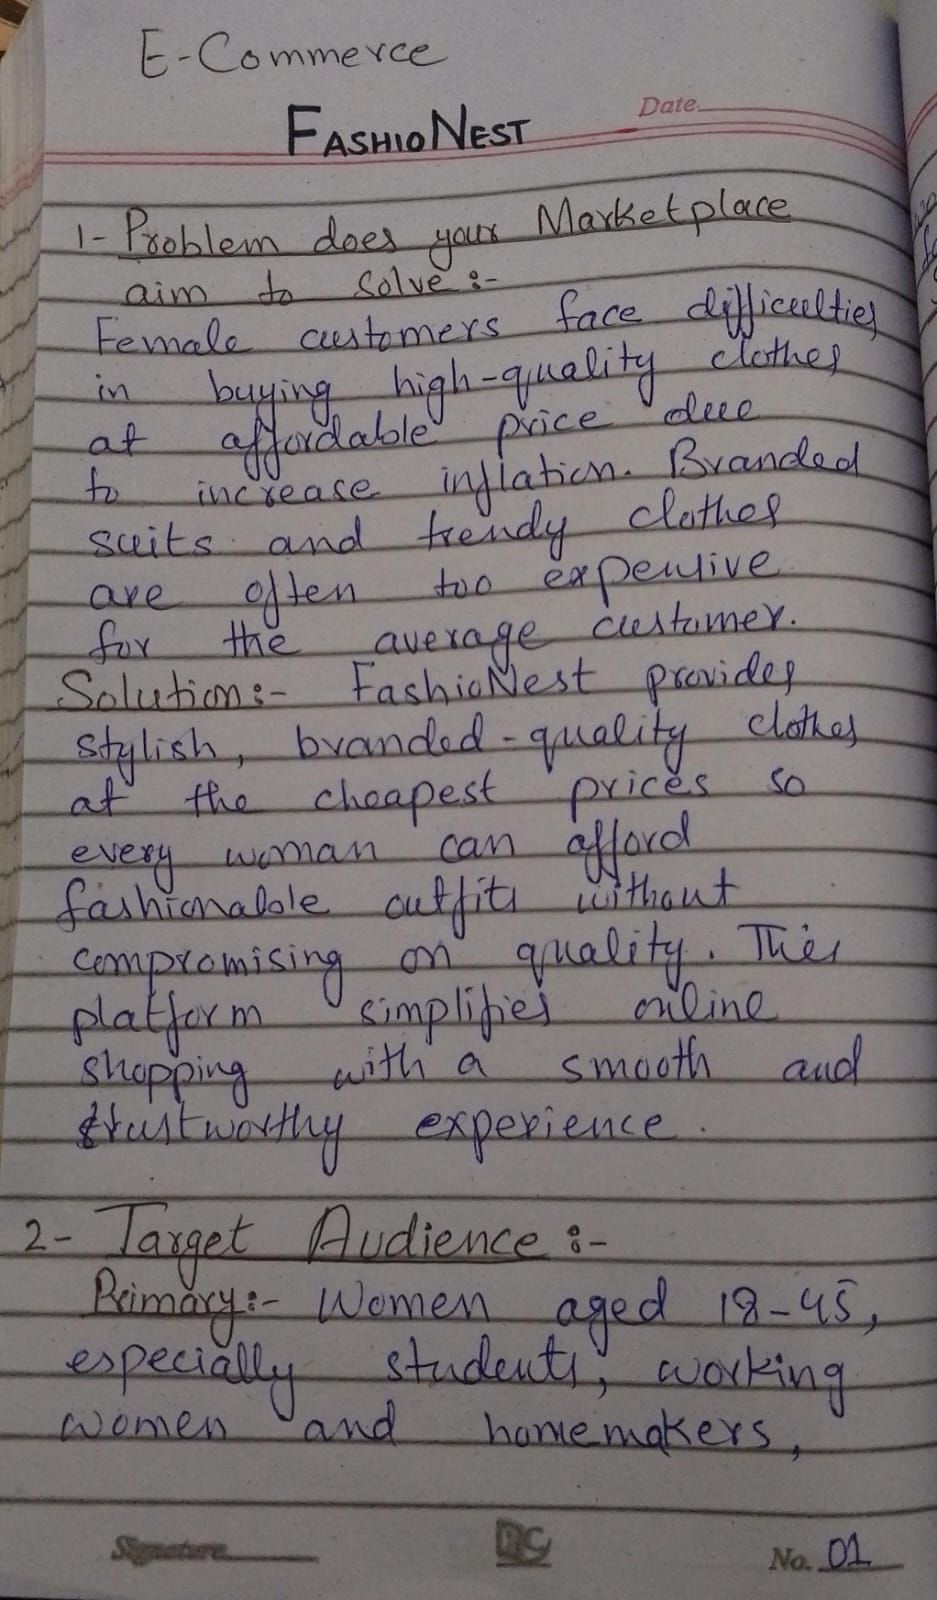 E-Commerce
Date.
FASHIONEST
1- Problem does your Marketplace
aim to solve :-
Female customers face difficulties
in buying high-quality clothes
at affordable price due
to increase inflation. Branded
suits and trendy clothes
are often too expensive
for the average customer.
Solution:- FashioNest provides
stylish, branded-quality clothes
at the cheapest prices so
every woman can afford
fashionable outfits without
compromising on quality. This
platform simplifies online
shopping with a smooth and
trustworthy experience.
2- Target Audience :-
Primary:- Women aged 18-45,
especially students, working
women and homemakers,
Signature
No. 01